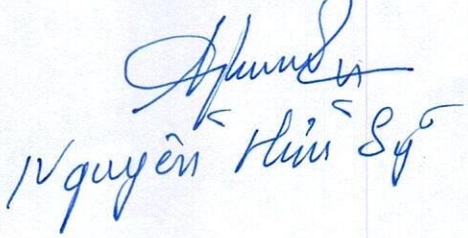 Nguyễn Hữu Sỹ